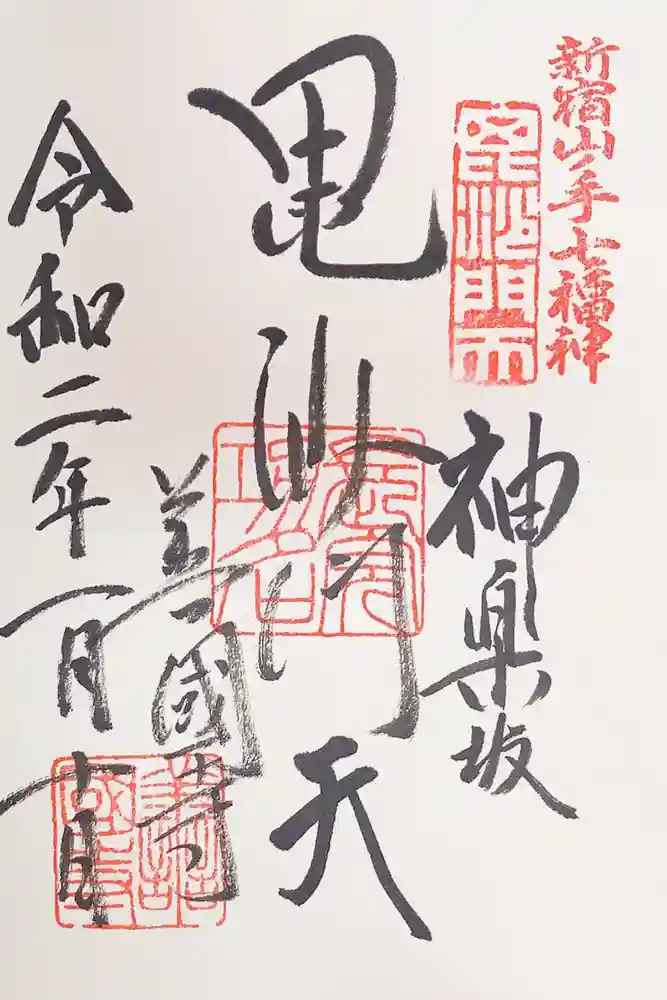 新宿山ノ手七福神
毘沙門天
神楽坂
毘沙門天
善國寺
令和二年一月十日